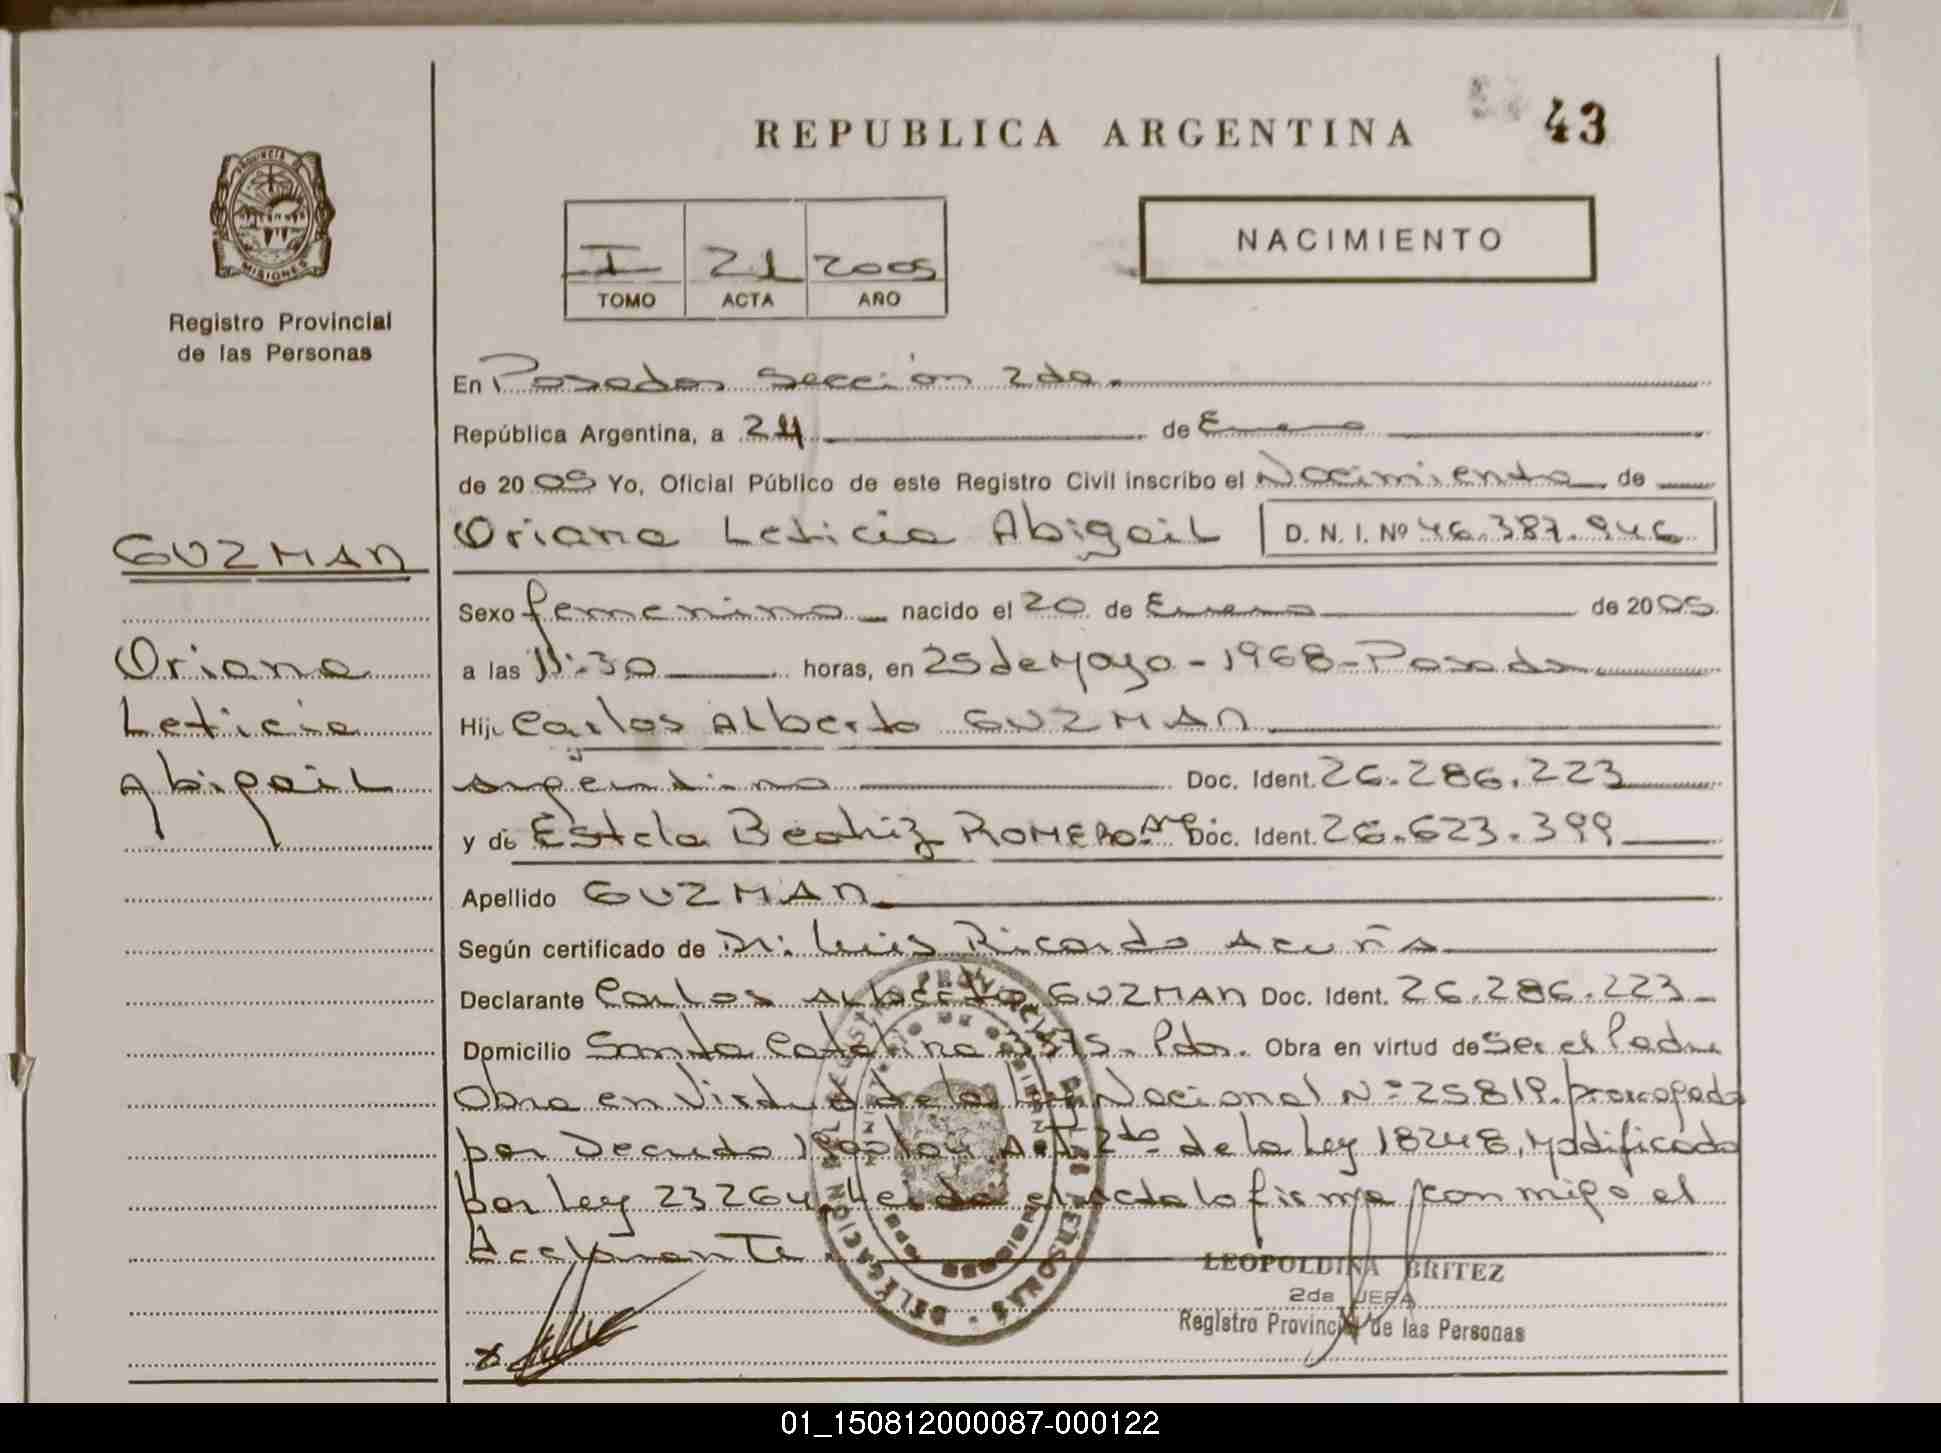 REPUBLICA ARGENTINA
43
PROVINCIA DE
MISIONES
Registro Provincial
de las Personas
I 21 2005
TOMO ACTA AÑO
NACIMIENTO
En Posadas Sección 2da.
República Argentina, a 24 de Enero
de 2005 Yo, Oficial Público de este Registro Civil inscribo el Nacimiento de
GUZMAN
Oriana Leticia Abigail D. N. I. Nº 46.387.946
Sexo femenino nacido el 20 de Enero de 2005
Oriana
a las 11:30 horas, en 25 de Mayo - 1968 - Posadas
Leticia
Hij Carlos Alberto GUZMAN
Abigail
argentino Doc. Ident. 26.286.223
y de Estela Beatriz ROMERO Doc. Ident. 26.623.399
Apellido GUZMAN
Según certificado de Dr. Luis Ricardo Acuña
Declarante Carlos Alberto GUZMAN Doc. Ident. 26.286.223
Domicilio Santa Catalina 3575 Pdas. Obra en virtud de ser el Padre
Obra en Virtud de la Ley Nacional Nº 25819. prorrogada
por Decreto Art 2do de la Ley 18248, Modificado
por Ley 23264 Leida el acta lo firma con migo el
declarante.
LEOPOLDINA BRITEZ
2da JEFA
Registro Provincial de las Personas
x
01_150812000087-000122